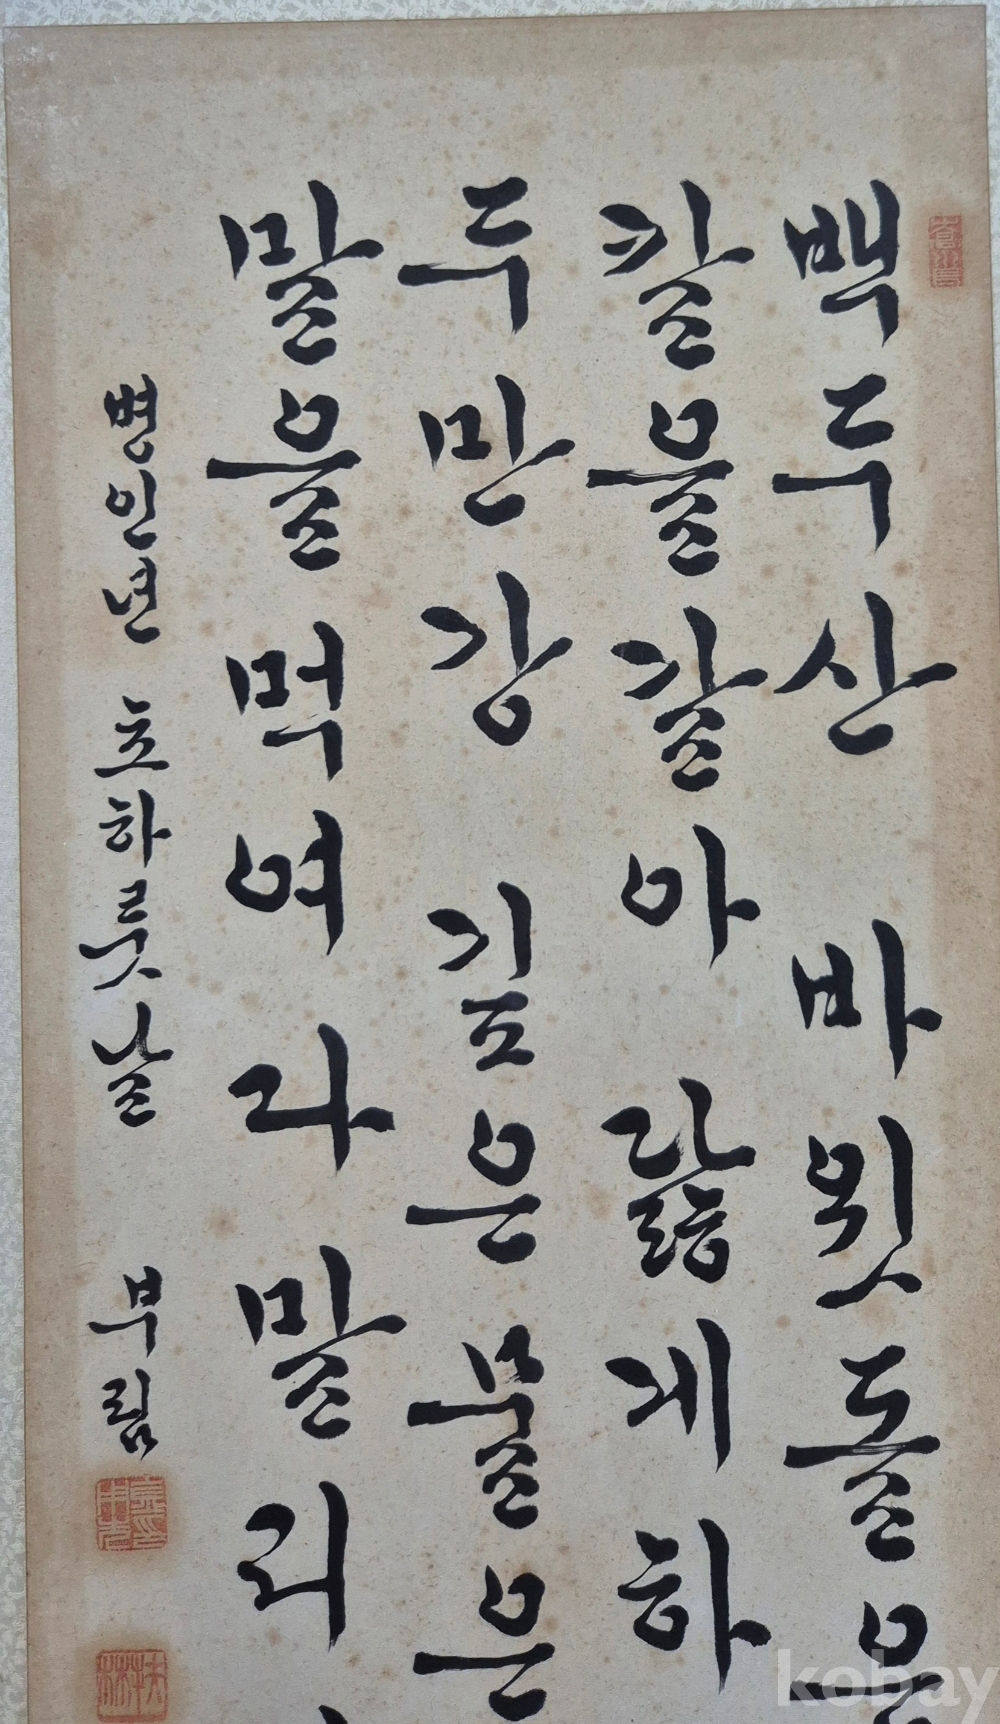 백두산 바윗돌은
칼을 갈아 닳게 하
두만강 깊은 물은
말을 먹여라 말리
병인년 초하룻날 부림
kobay